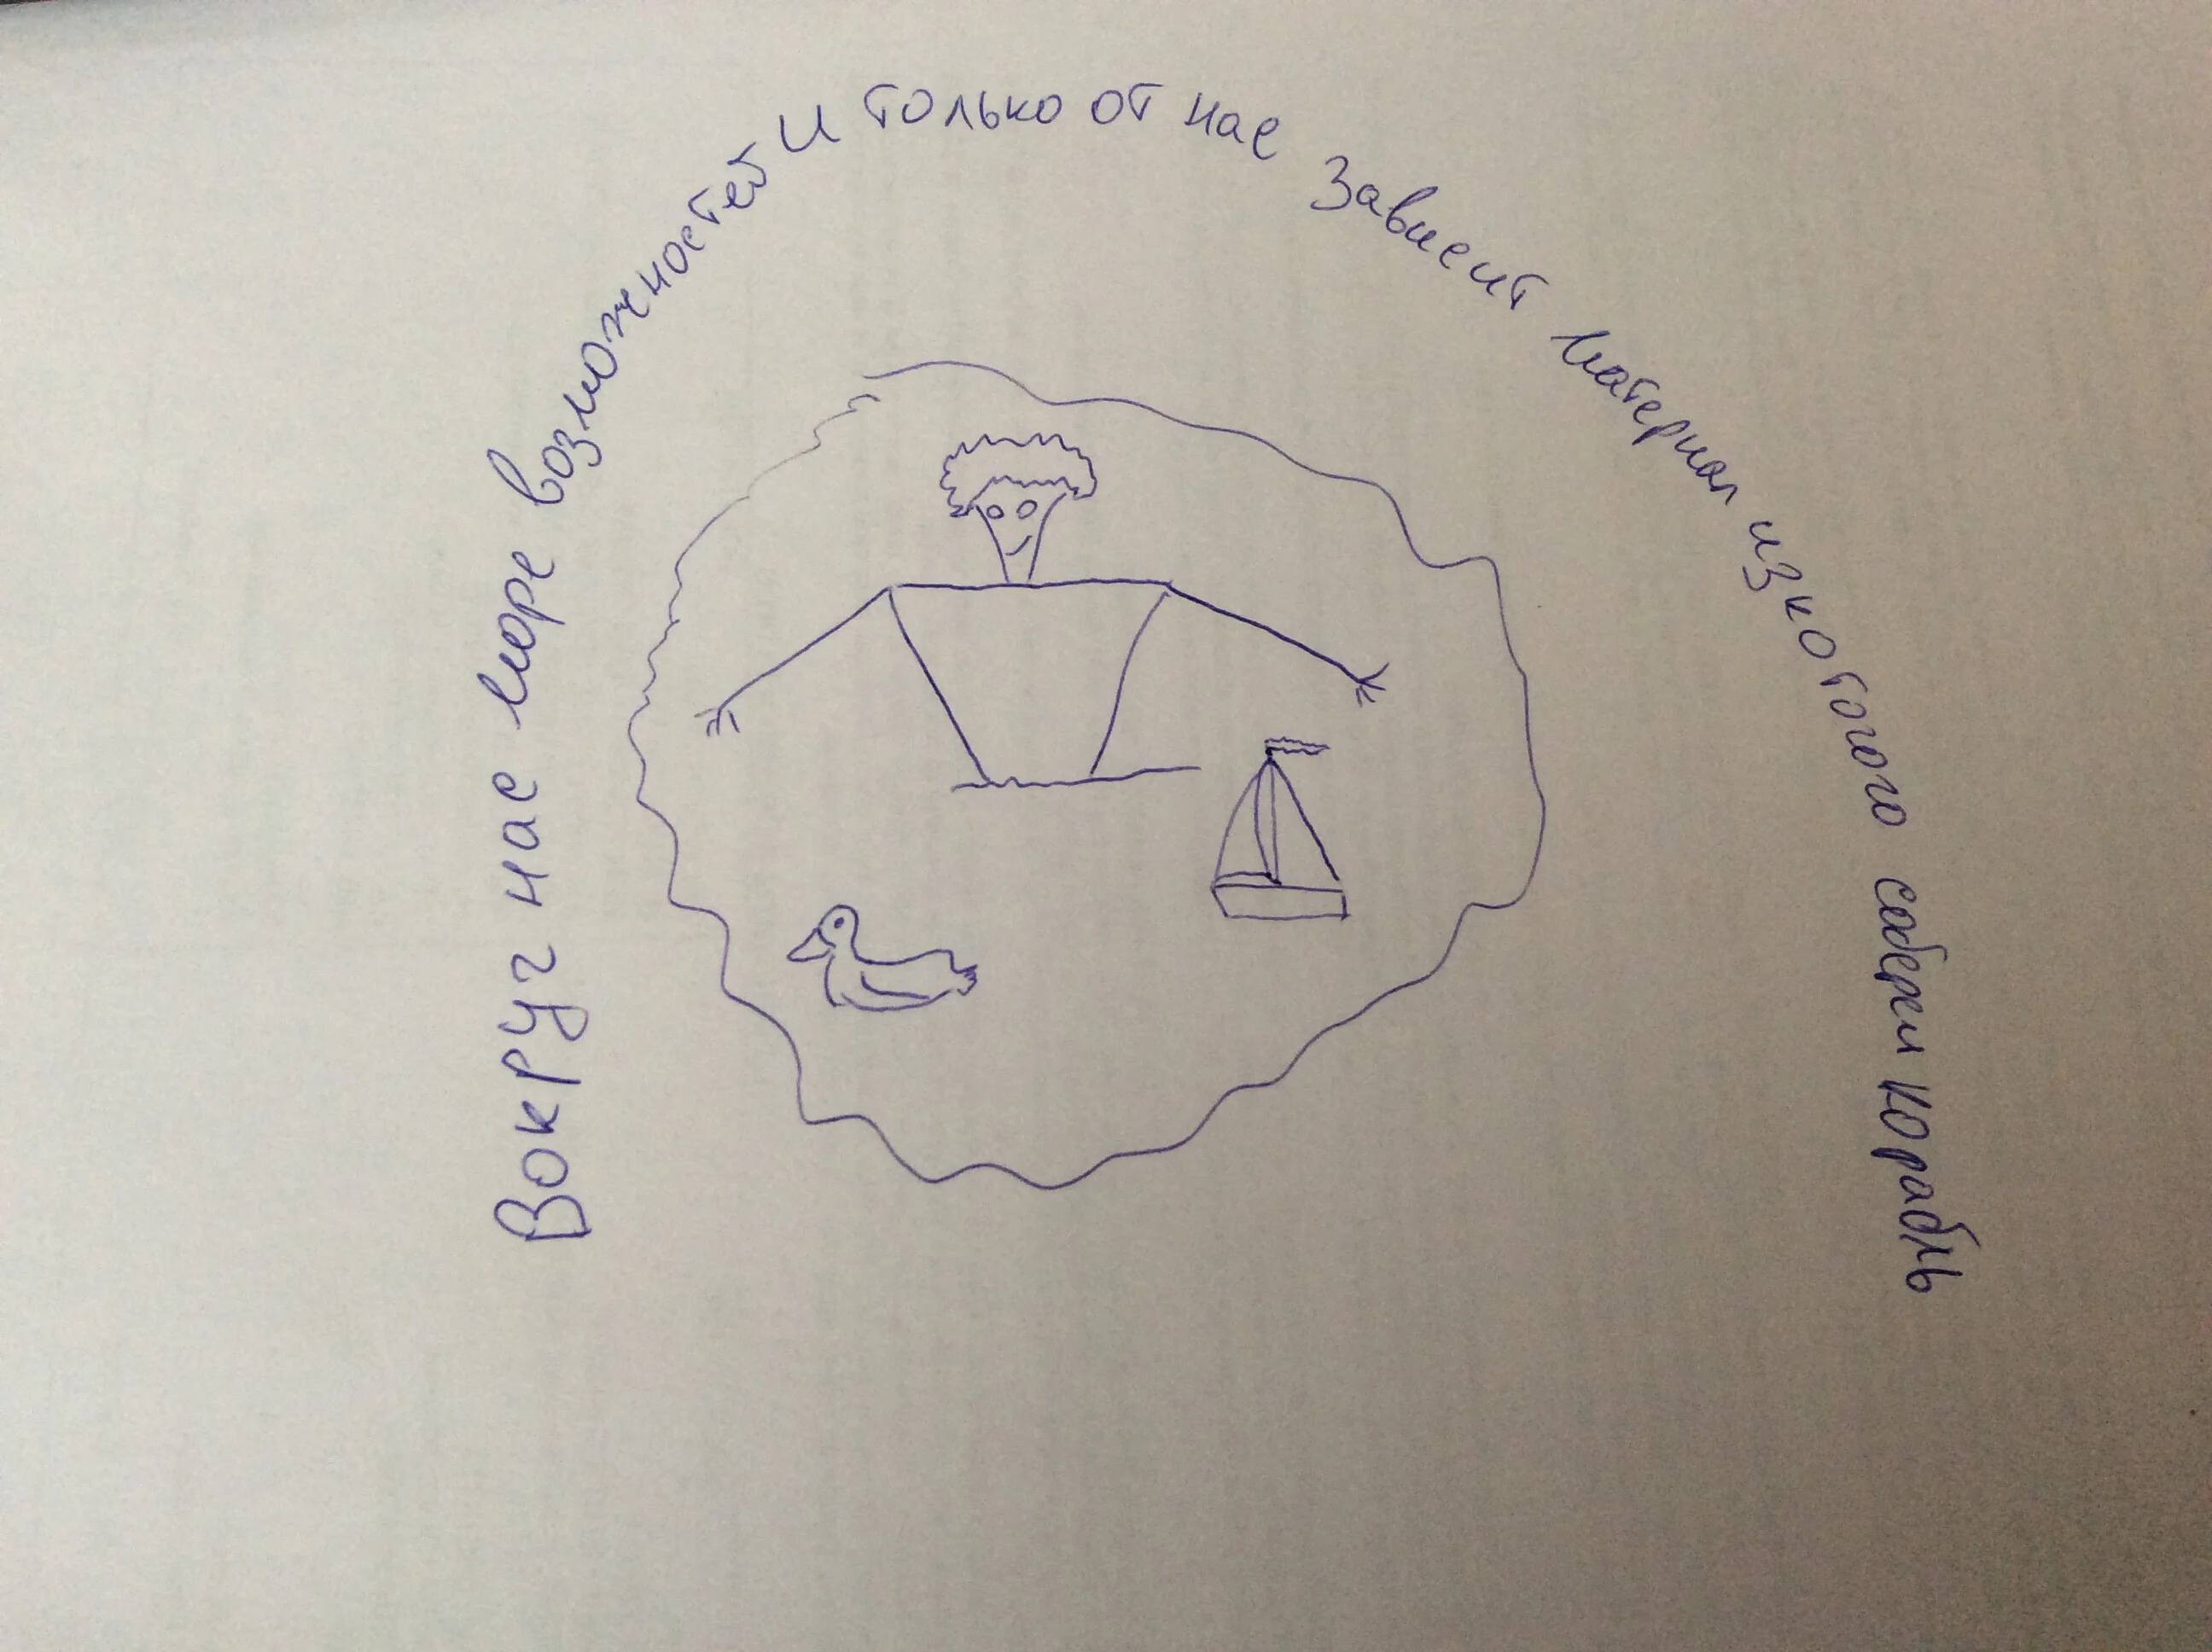 Вокруг нас море возможностей и только от нас зависит материал из котого соберем корабль